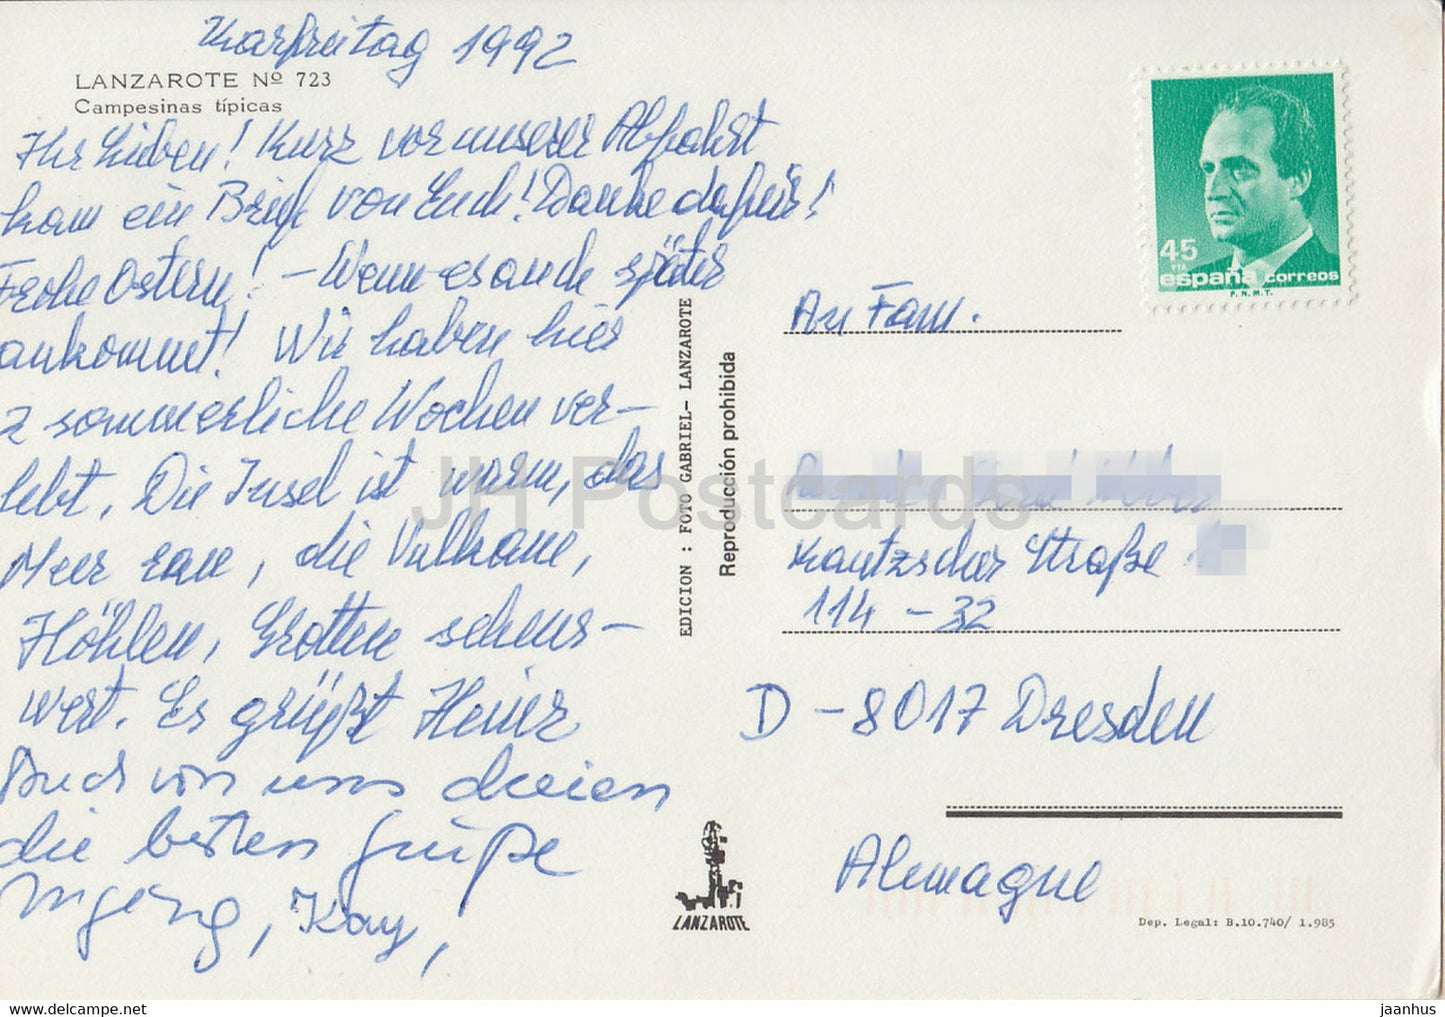 Karfreitag 1992
LANZAROTE Nº 723
Campesinas típicas
Ihr Lieben! Kurz vor unserer Abfahrt
kam ein Brief von Euch! Danke dafür!
Frohe Ostern! - Wenn es auch später
ankommt! Wir haben hier
2 sommerliche Wochen ver-
lebt. Die Insel ist warm, das
Meer rau, die Vulkane,
Höhlen, Grotten sehens-
wert. Es grüßt Heinz
Auch von uns dreien
die besten Grüße
Ingerg, Kay,
EDICION : FOTO GABRIEL- LANZAROTE
Reproducción prohibida
LANZAROTE
45
PTA
españa correos
F.N.M.T.
An Fam.
Kautzscher Straße
114 - 32
D - 8017 Dresden
Alemagne
Dep. Legal: B.10.740/ 1.985
JH Postcards
hippostcard.com
jaanhus